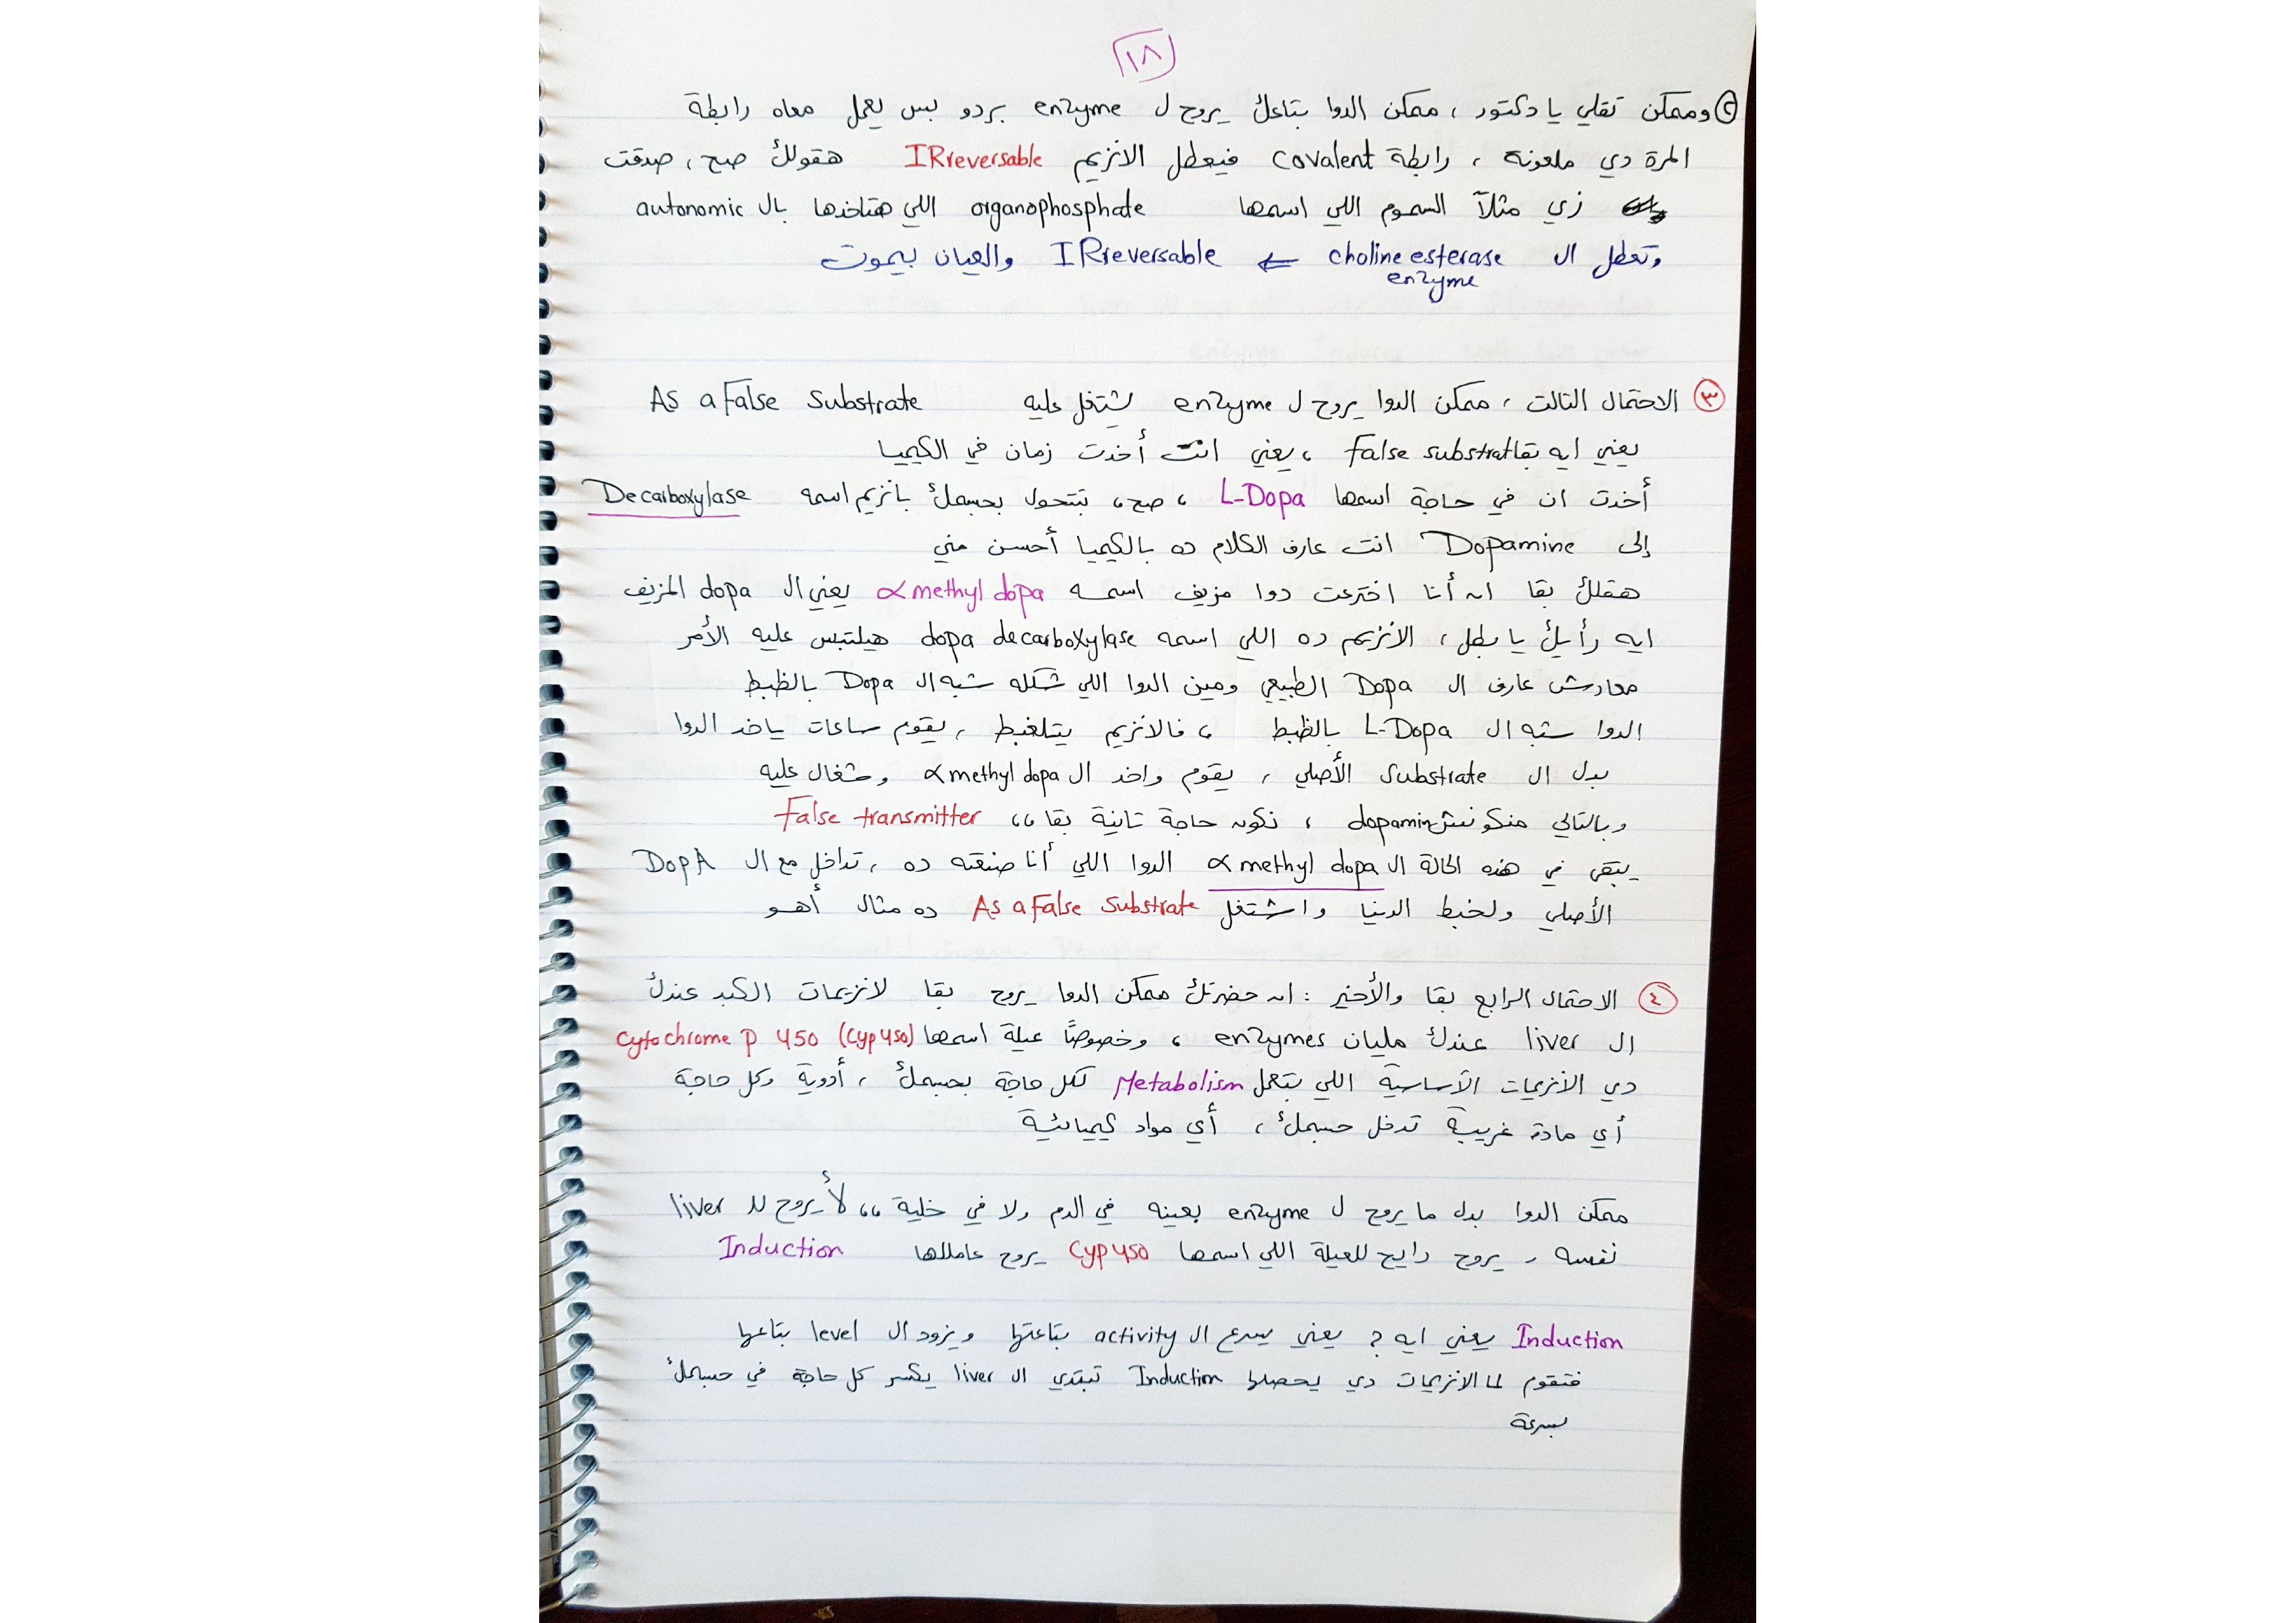 ١٨
٢ وممكن تقلي يا دكتور ، ممكن الدوا بتاعك يروح ل enzyme بردو بس يعمل معاه رابطة
المرة دي ملعونه ، رابطة covalent فيعطل الانزيم IRreversable هقولك صح ، صدقت
زي مثلاً السموم اللي اسمها organophosphate اللي هتاخدها بال autonomic
وتعطل ال choline esterase enzyme ⇐ IRreversable والعيان بيموت
٣ الاحتمال التالت ، ممكن الدوا يروح ل enzyme يشتغل عليه As a False Substrate
يعني ايه بقا False substrat ، يعني انت أخدت زمان في الكيميا
أخدت ان في حاجة اسمها L-Dopa ، صح ، بتتحول بجسمك بانزيم اسمه Decarboxylase
إلى Dopamine انت عارف الكلام ده بالكيميا أحسن مني
هقلك بقا ان أنا اخترعت دوا مزيف اسمه α methyl dopa يعني ال dopa المزيف
ايه رأيك يا بطل ، الانزيم ده اللي اسمه dopa decarboxylase هيلتبس عليه الأمر
معادش عارف ال Dopa الطبيعي ومين الدوا اللي شكله شبه ال Dopa بالظبط
الدوا شبه ال L-Dopa بالظبط ، فالانزيم يتلغبط ، يقوم ساعات ياخد الدوا
بدل ال Substrate الأصلي ، يقوم واخد ال α methyl dopa وشغال عليه
وبالتالي منكونش dopamin ، نكون حاجة تانية بقا ،، False transmitter
يبقى في هذه الحالة ال α methyl dopa الدوا اللي أنا صنعته ده ، تداخل مع ال DopA
الأصلي ولخبط الدنيا واشتغل As a False Substrate ده مثال أهو
٤ الاحتمال الرابع بقا والأخير : ان حضرتك ممكن الدوا يروح بقا لانزيمات الكبد عندك
ال liver عندك مليان enzymes ، وخصوصًا عيلة اسمها Cytochrome P 450 (Cyp450)
دي الانزيمات الأساسية اللي بتعمل Metabolism لكل حاجة بجسمك ، أدوية وكل حاجة
أي مادة غريبة تدخل جسمك ، أي مواد كيميائية
ممكن الدوا بدل ما يروح ل enzyme بعينه في الدم ولا في خلية ،، لأ يروح لل liver
نفسه ، يروح رايح للعيلة اللي اسمها Cyp450 يروح عاملها Induction
Induction يعني ايه ؟ يعني يسرع ال activity بتاعتها ويزود ال level بتاعها
فتقوم لما الانزيمات دي يحصلها Induction تبتدي ال liver يكسر كل حاجة في جسمك
بسرعة